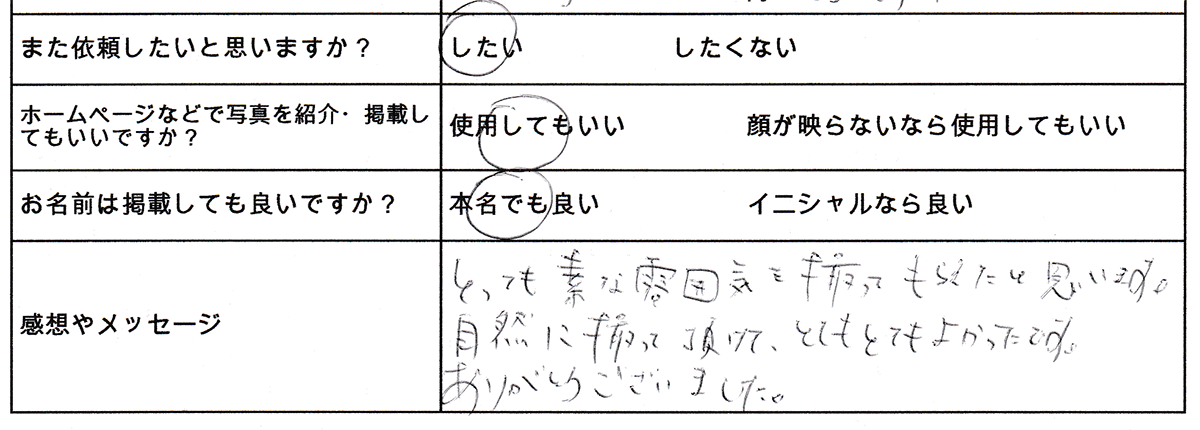 また依頼したいと思いますか？ したい したくない
ホームページなどで写真を紹介・掲載し
てもいいですか？ 使用してもいい 顔が映らないなら使用してもいい
お名前は掲載しても良いですか？ 本名でも良い イニシャルなら良い
感想やメッセージ
とっても素な雰囲気を撮ってもらえたと思います。
自然に撮って頂けて、とてもとてもよかったです。
ありがとうございました。